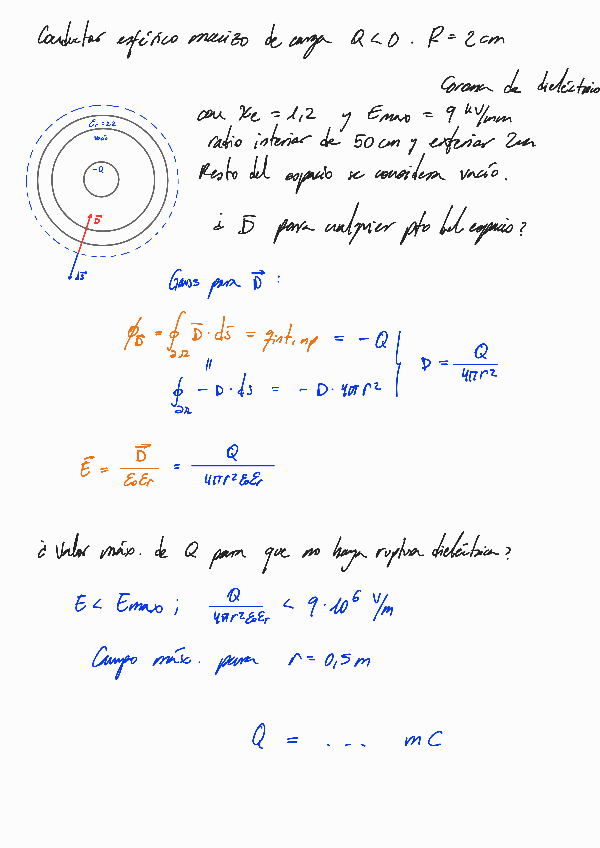 Conductor esférico macizo de carga Q<0. R = 2cm
Corona de dieléctrico
con χe = 1,2 y Emax = 9 kV/mm
radio interior de 50cm y exterior 2cm
Resto del espacio se considera vacío.
¿ D⃗ para cualquier pto del espacio?
εr = 2,2
vacío
-Q
D⃗
dS⃗
Gauss para D⃗ :
ϕD⃗ = ∮∂Ω D⃗ · dS⃗ = qint,np = -Q
||
∮∂Ω - D · dS = - D · 4πr²
D = Q / 4πr²
E⃗ = D⃗ / ε0εr = Q / 4πr²ε0εr
¿ Valor máx. de Q para que no haya ruptura dieléctrica?
E < Emax ; Q / 4πr²ε0εr < 9·10⁶ V/m
Campo máx. para r = 0,5 m
Q = ... mC